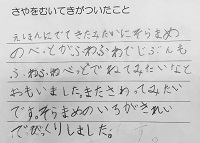 さやをむいてきがついたこと
えほんにでてきたみたいにそらまめ
のべっとがふわふわでじぶんも
ふわふわべっどでねてみたいなと
おもいました。またさわってみたい
です。そらまめのいろがきれい
でびっくりしました。